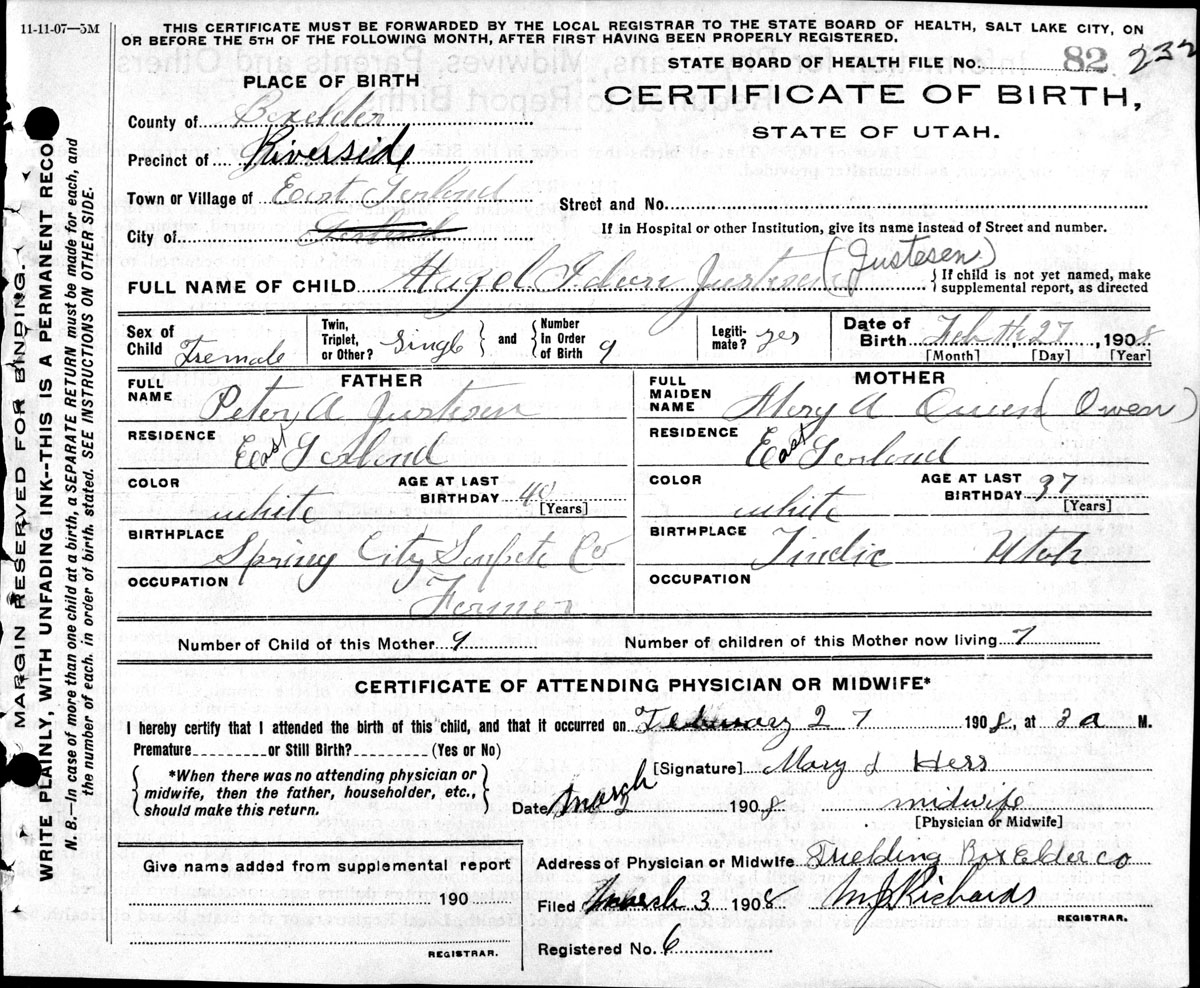 11-11-07—5M
THIS CERTIFICATE MUST BE FORWARDED BY THE LOCAL REGISTRAR TO THE STATE BOARD OF HEALTH, SALT LAKE CITY, ON
OR BEFORE THE 5TH OF THE FOLLOWING MONTH, AFTER FIRST HAVING BEEN PROPERLY REGISTERED.
STATE BOARD OF HEALTH FILE No. 82 232
PLACE OF BIRTH
CERTIFICATE OF BIRTH,
STATE OF UTAH.
County of Boxelder
Precinct of Riverside
Town or Village of East Garland
Street and No.
City of Garland
If in Hospital or other Institution, give its name instead of Street and number.
FULL NAME OF CHILD Hazel Justesen (Justesen)
{ If child is not yet named, make
supplemental report, as directed
Sex of Child Fremale
Twin, Triplet, or Other? Single } and { Number In Order of Birth 9
Legiti-mate? yes
Date of Birth Feb the 27, 1908
[Month] [Day] [Year]
FATHER
FULL NAME Peter A Justesen
RESIDENCE East Garland
COLOR white
AGE AT LAST BIRTHDAY 40
[Years]
BIRTHPLACE Spring City Sanpete Co
OCCUPATION Farmer
MOTHER
FULL MAIDEN NAME Mary A Owen (Owen)
RESIDENCE East Garland
COLOR white
AGE AT LAST BIRTHDAY 37
[Years]
BIRTHPLACE Utah
OCCUPATION
Number of Child of this Mother 9
Number of children of this Mother now living 7
CERTIFICATE OF ATTENDING PHYSICIAN OR MIDWIFE*
I hereby certify that I attended the birth of this child, and that it occurred on February 27 1908, at a M.
Premature or Still Birth? (Yes or No)
{ *When there was no attending physician or
midwife, then the father, householder, etc.,
should make this return. }
[Signature] Mary J Hess
Date March 2 1908 midwife
[Physician or Midwife]
Give name added from supplemental report
190
REGISTRAR.
Address of Physician or Midwife Frielding Box Elder co
Filed March 3 1908 M J Richards
REGISTRAR.
Registered No. 6
MARGIN RESERVED FOR BINDING.
WRITE PLAINLY, WITH UNFADING INK--THIS IS A PERMANENT RECO
N. B.—In case of more than one child at a birth, a SEPARATE RETURN must be made for each, and
the number of each, in order of birth, stated. SEE INSTRUCTIONS ON OTHER SIDE.